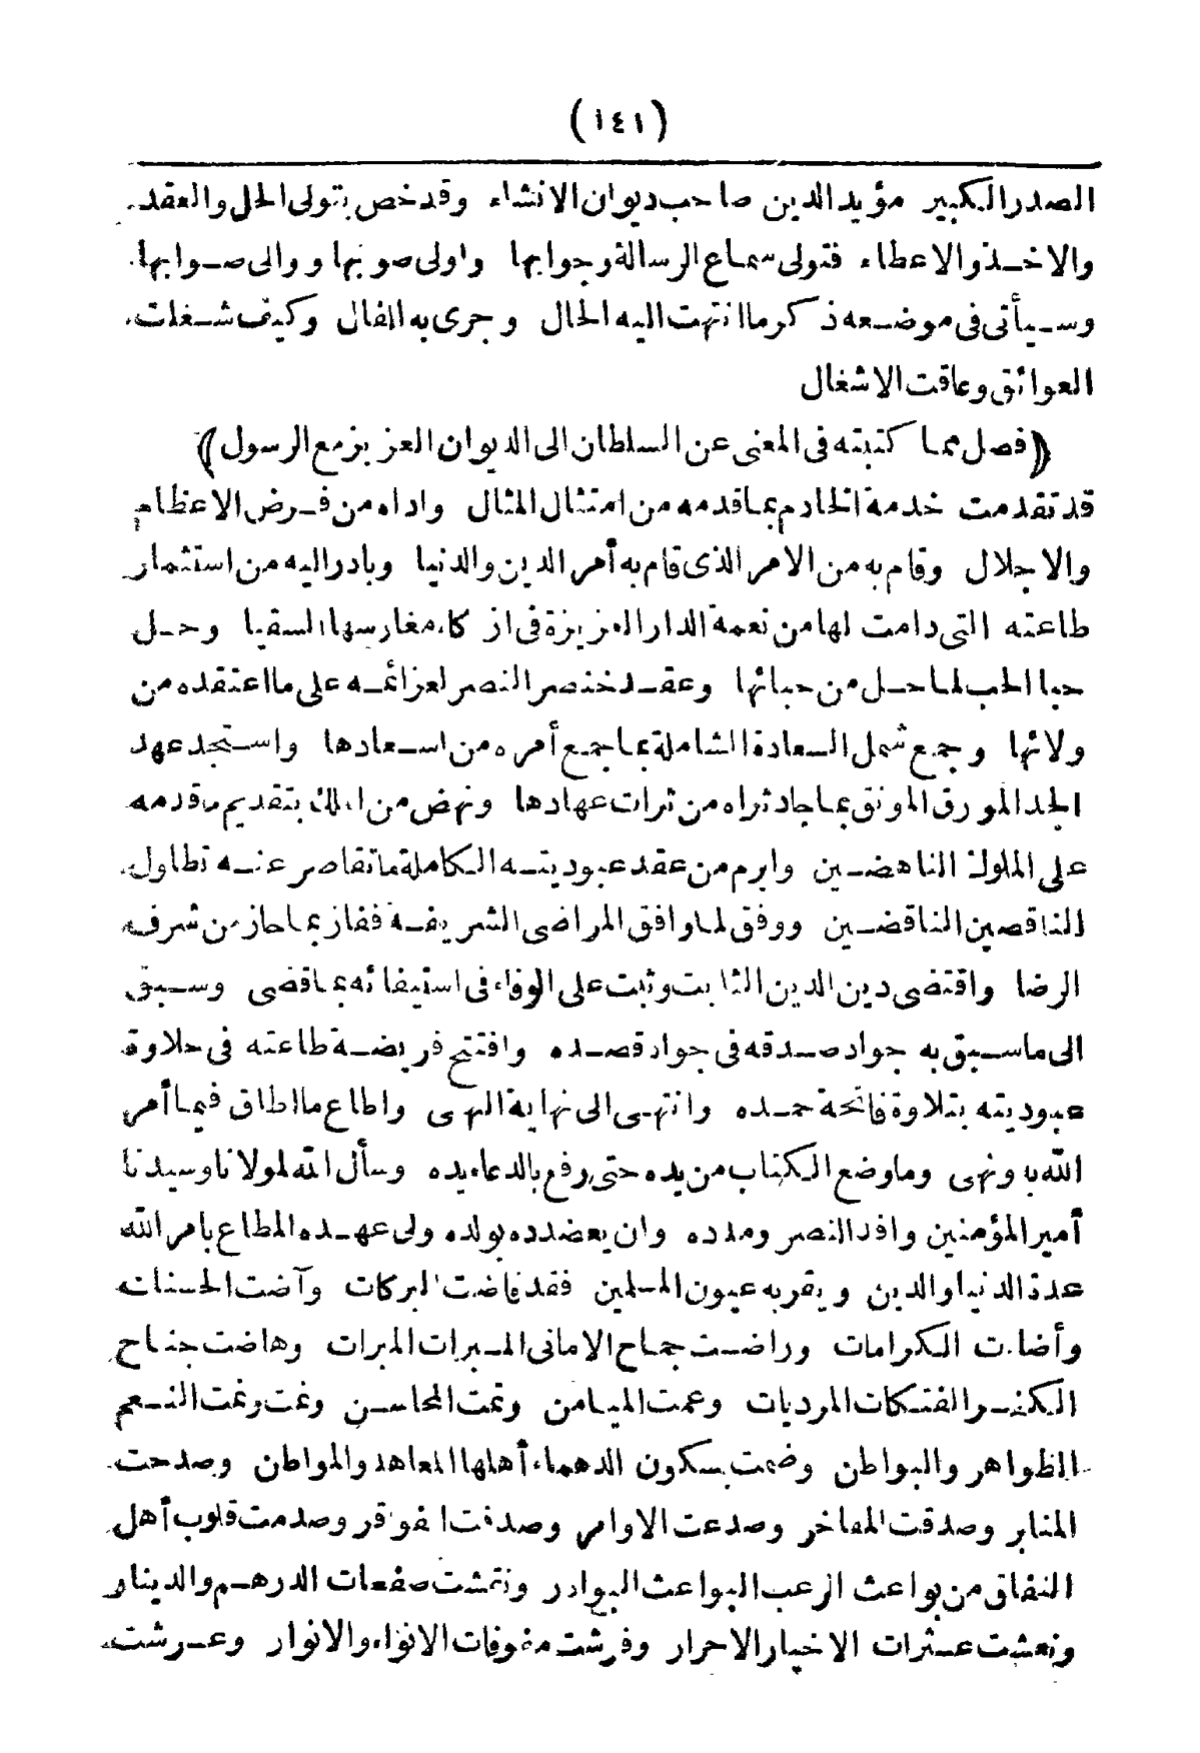 (١٤١)
الصدر الكبير مؤيد الدين صاحب ديوان الانشاء وقد خص بتولى الحل والعقد
والاخذ والاعطاء فتولى سماع الرسالة وجوابها واولى صوبها ووالى صوابها
وسيأتى فى موضعه ذكر ما انتهت اليه الحال وجرى به المقال وكيف شغلت
العوائق وعاقت الاشغال
﴿فصل مما كتبته فى المعنى عن السلطان الى الديوان العزيز مع الرسول﴾
قد تقدمت خدمة الخادم بما قدمه من امتثال المثال واداه من فرض الاعظام
والاجلال وقام به من الامر الذى قام به أمر الدين والدنيا وبادر اليه من استثمار
طاعته التى دامت لها من نعمة الدار العزيزة فى ازكاء مغارسها السقيا وحل
حبا الحب لما حل من حبائها وعقد خنصر النصر لعزائمه على ما اعتقده من
ولائها وجمع شمل السعادة الشاملة بما جمع أمره من اسعادها واستجد عهد
الجد المورق المونق بما جاد ثراه من ثرات عهادها ونهض من الملك بتقديم ما قدمه
على الملوك الناهضين وابرم من عقد عبوديته الكاملة ما تقاصر عنه تطاول
الناقصين الناقضين ووفق لما وافق المراضى الشريفة ففاز بما حاز من شرف
الرضا واقتضى دين الدين الثابت وثبت على الوفاء فى استيفائه بما قضى وسبق
الى ما سبق به جواد صدقه فى جواد قصده وافتتح فريضة طاعته فى حلاوة
عبوديته بتلاوة فاتحة حمده وانتهى الى نهاية النهى واطاع ما اطاق فيما أمر
الله به ونهى وما وضع الكتاب من يده حتى رفع بالدعاء يده وسأل الله لمولانا وسيدنا
أمير المؤمنين وافد النصر ومدده وان يعضده بولده ولى عهده المطاع بامر الله
عدة الدنيا والدين ويقر به عيون المسلمين فقد فاضت البركات وآضت الحسنات
وأضاءت الكرامات وراضت جماح الامانى المسبرات المبرات وهاضت جناح
الكفر الفتكات المرديات وعمت الميامن وتمت المحاسن ونمت رغت النعم
الظواهر والبواطن وضمت بسكون الدهماء أهلها المعاهد والمواطن وصدحت
المنابر وصدقت المفاخر وصدعت الاوامر وصدفت الفواقر وصدمت قلوب أهل
النفاق من بواعث الرعب البواعث البوادر ونقشت صفحات الدرهم والدينار
ونعشت عثرات الاخيار الاحرار وفرشت مفوفات الانواء والانوار وعرشت